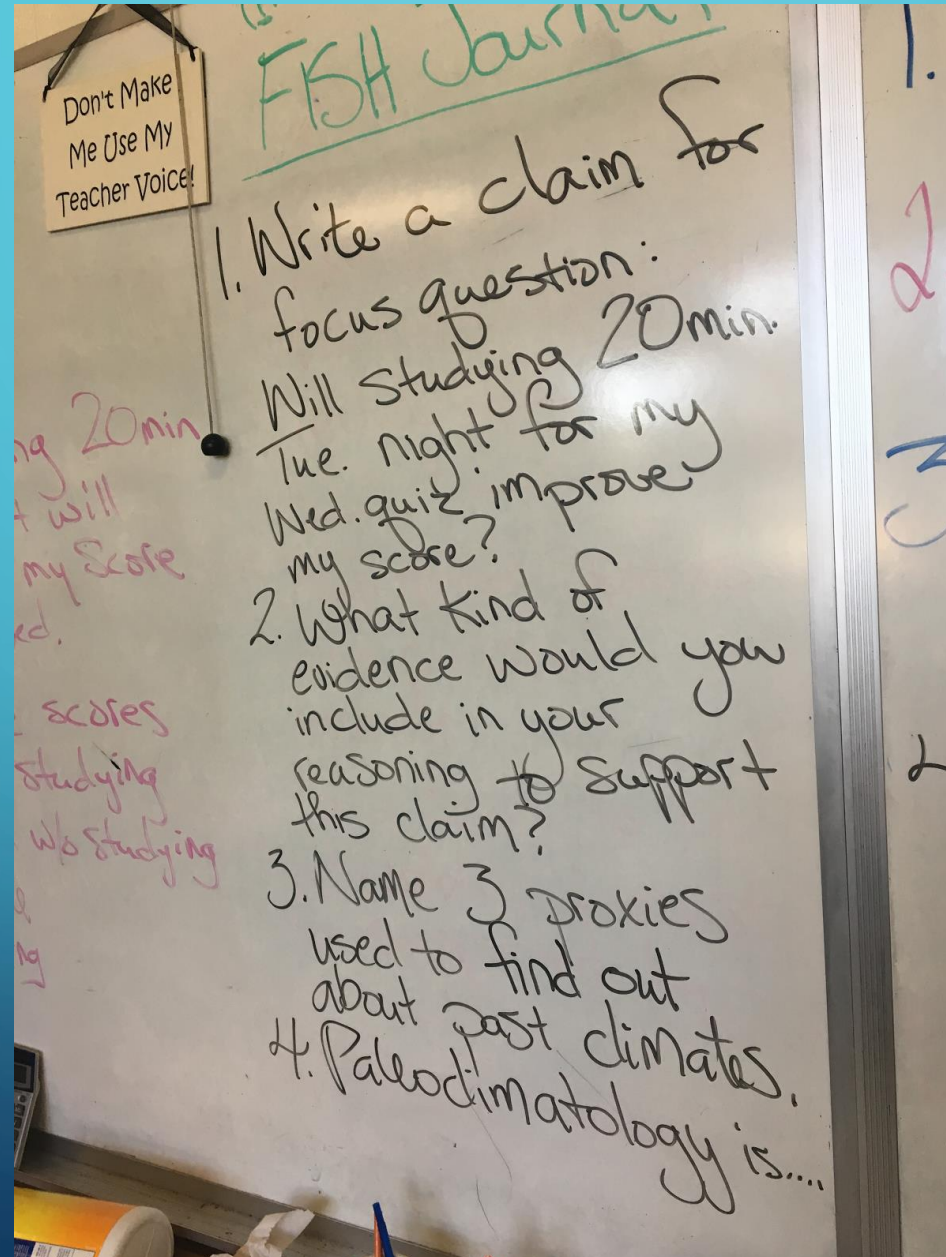 FISH Journal
Don't Make
Me Use My
Teacher Voice!
1. Write a claim for
focus question:
Will studying 20min.
Tue. night for my
Wed. quiz improve
my score?
2. What kind of
evidence would you
include in your
reasoning to support
this claim?
3. Name 3 proxies
used to find out
about past climates.
4. Paleoclimatology is....
ng 20min
will
my Score
ed.
scores
studying
w/o studying
ng
1.
2
3